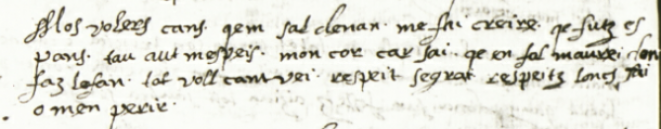 Mos volers cans. qem sal denan. me fai creire. qe futz es
pans. tau aut mespeis. mon cor car sai. qe en fol maurei. don
faz lofan. tot voll cant vei. respeit segrai respeitz loncs fai
omen perir.